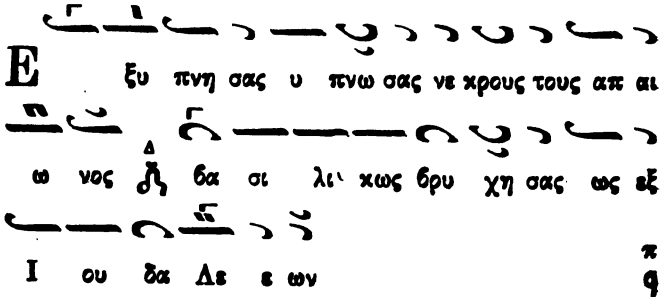 Ε ξυ πνη σας υ πνω σας νε κρους τους απ αι
ω νος Δ βα σι λι κως βρυ χη σας ως εξ
Ι ου δα Λε ε ων π q